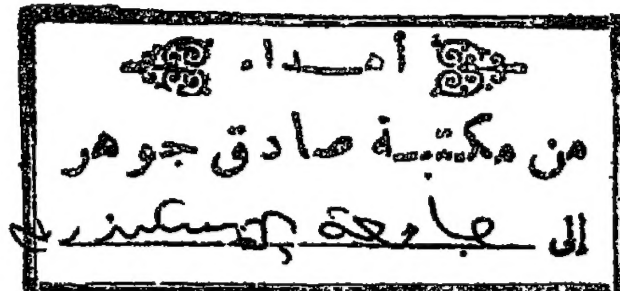 أهـــداء
من مكتبـة صادق جوهر
إلى جامعة الإسكندرية